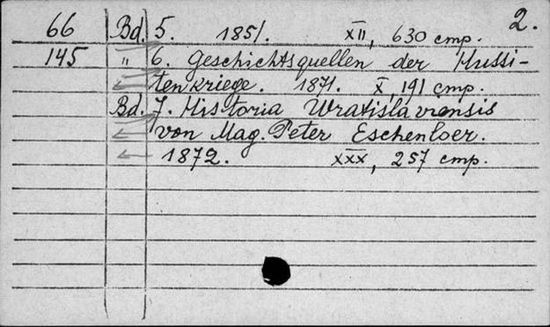 2.
66 Bd. 5. 1851. XII, 630 стр.
145 " 6. Geschichtsquellen der Hussi-
tenkriege. 1871. X, 191 стр.
Bd. 7. Historia Wratislaviensis
von Mag. Peter Eschenloer.
1872. XXX, 257 стр.